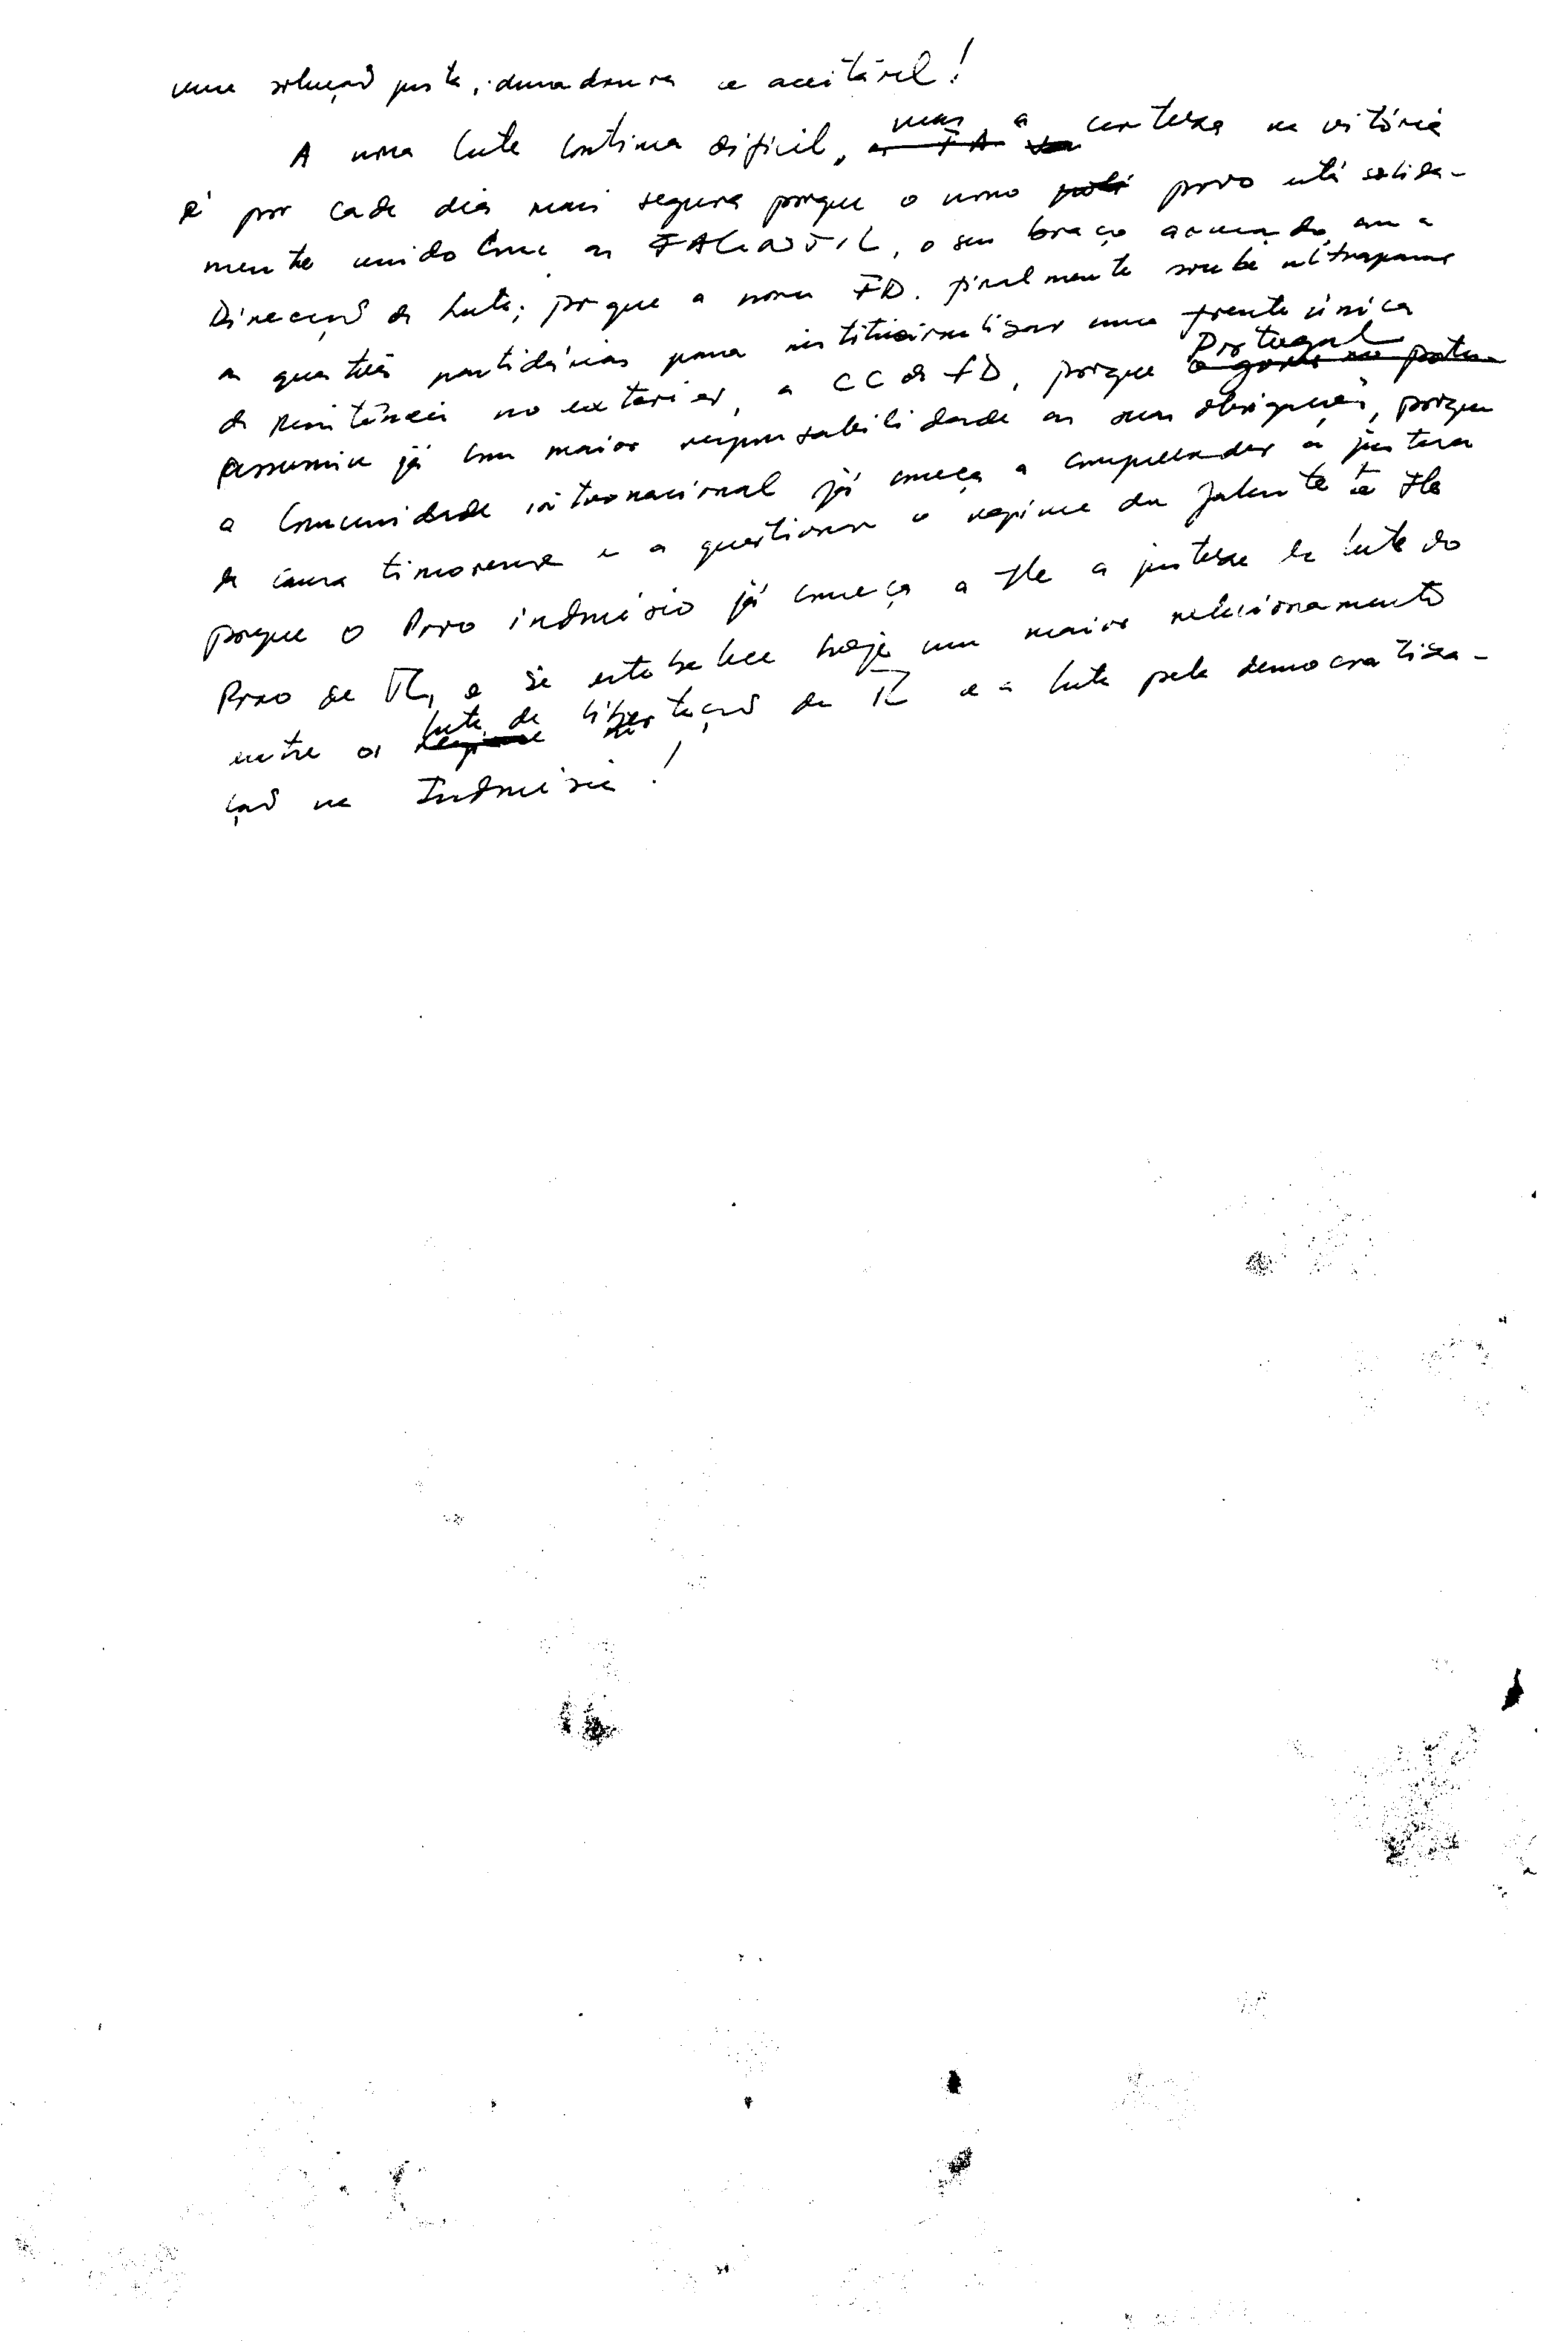 uma solução justa, duradoura e aceitável!
A nossa luta continua difícil, mas a certeza na vitória
é por cada dia mais segura porque o nosso povo está solida-
mente unido com as FALINTIL, o seu braço armado, com a
Direcção da Luta; porque a nossa FD. finalmente soube ultrapassar
as questões partidárias para institucionalizar uma frente única
da Resistência no exterior, a CC da FD, porque Portugal
assumiu já com maior responsabilidade as suas obrigações, porque
a Comunidade internacional já começa a compreender a justeza
da causa timorense e a questionar o regime de Jakarta
porque o Povo indonésio já começa a a justeza da luta do
Povo de TL, e se estabelece hoje um maior relacionamento
entre a luta de libertação de TL e a luta pela democratiza-
ção na Indonésia!